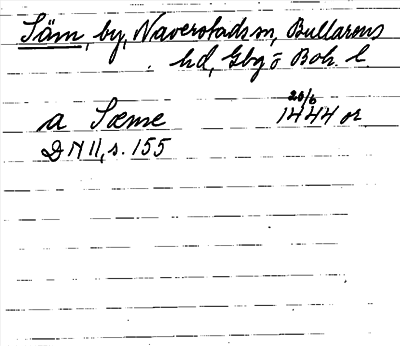 Säm, by, Naverstads sn, Bullarens
hd, Gbg o Boh. l.
20/6
a Sæme 1444 or.
DN 11, s. 155